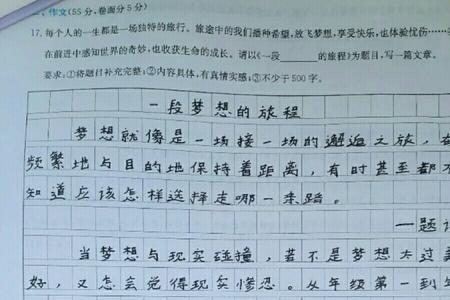 二、作文(55分,卷面分5分)
17. 每个人的一生都是一场独特的旅行。旅途中的我们播种希望,放飞梦想,享受快乐,也体验忧伤……
在前进中感知世界的奇妙,也收获生命的成长。请以《一段______的旅程》为题目,写一篇文章。
要求:①将题目补充完整;②内容具体,有真情实感;③不少于500字。
一段梦想的旅程
梦想就像是一场接一场的邂逅之旅,在
频繁地与目的地保持着距离,有时甚至都不
知道应该怎样选择走哪一条路。
一题记
当梦想与现实碰撞,若不是梦想太过美
好,又怎会觉得现实惨忍。从年级第一到年